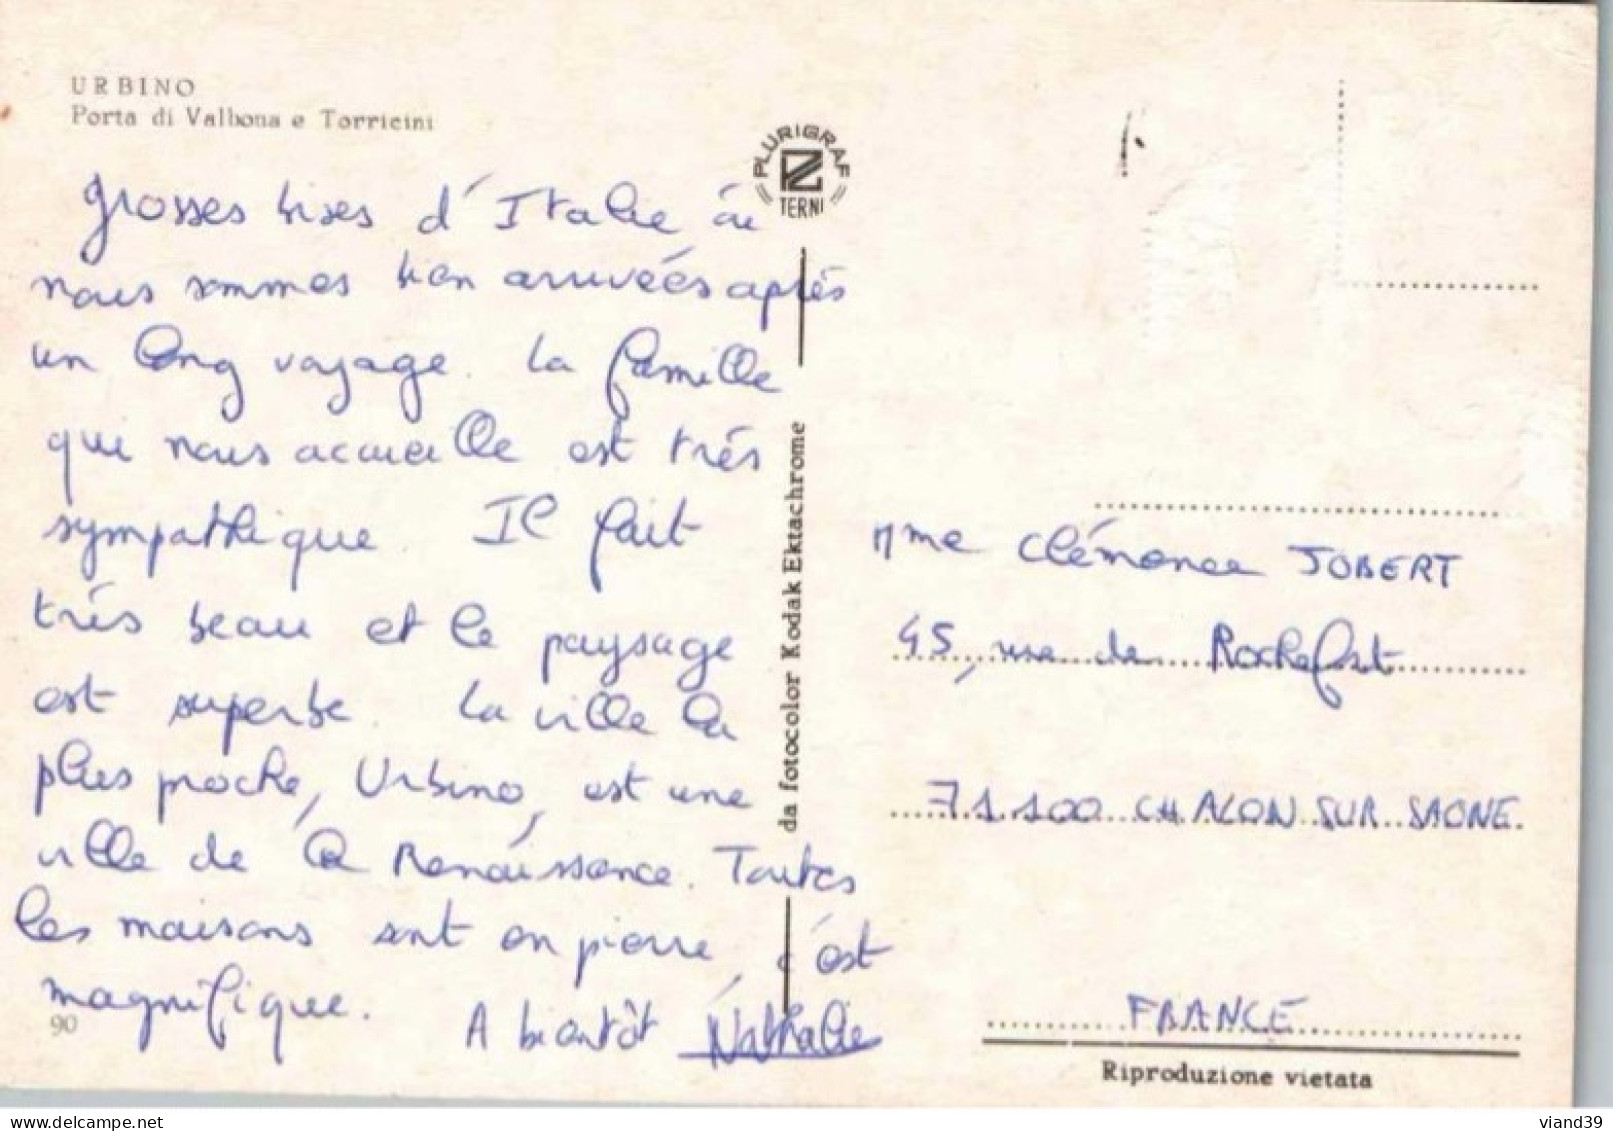 URBINO
Porta di Valbona e Torricini
PLURIGRAF
TERNI
grosses bises d'Italie où
nous sommes bien arrivées après
un long voyage. La famille
qui nous accueille est très
sympathique. Il fait
très beau et le paysage
est superbe. La ville la
plus proche, Urbino, est une
ville de la Renaissance. Toutes
les maisons sont en pierre, c'est
magnifique.
A bientôt Nathalie
90
da fotocolor Kodak Ektachrome
Mme Clémence JOBERT
45, rue de Rochefort
71100 CHALON SUR SAONE
FRANCE
Riproduzione vietata
viand39